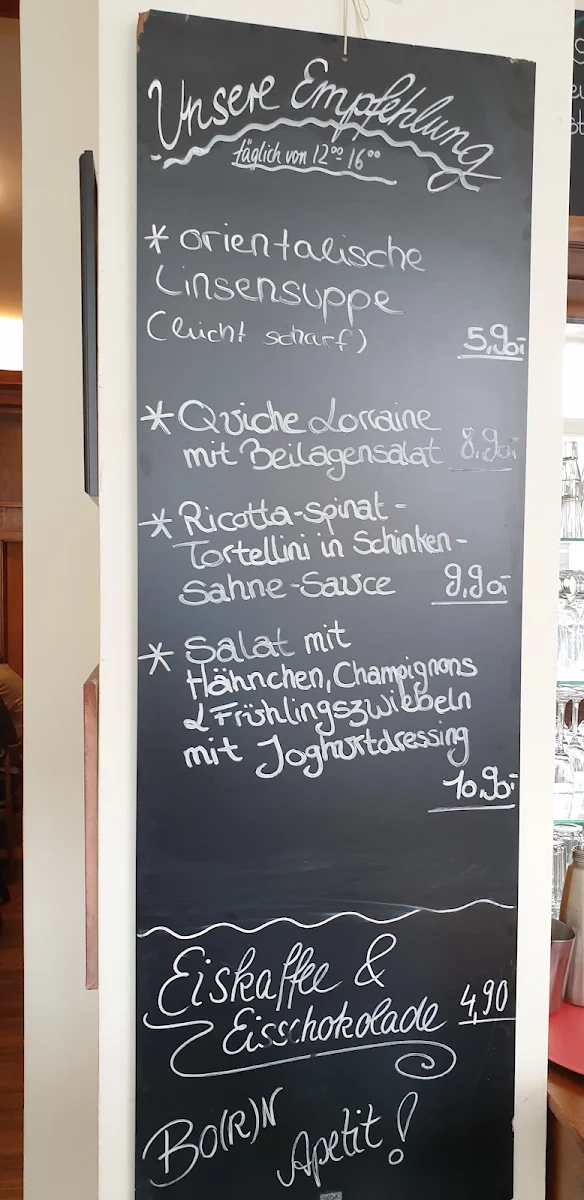 Unsere Empfehlung
täglich von 12⁰⁰- 16⁰⁰
* orientalische
Linsensuppe
(leicht scharf)
5,90-
* Quiche Lorraine
mit Beilagensalat 8,90-
* Ricotta-Spinat-
Tortellini in Schinken-
Sahne-Sauce 9,90-
* Salat mit
Hähnchen, Champignons
& Frühlingszwiebeln
mit Joghurtdressing
10,90-
Eiskaffee &
Eisschokolade 4,90
Bo(R)N
Apetit!